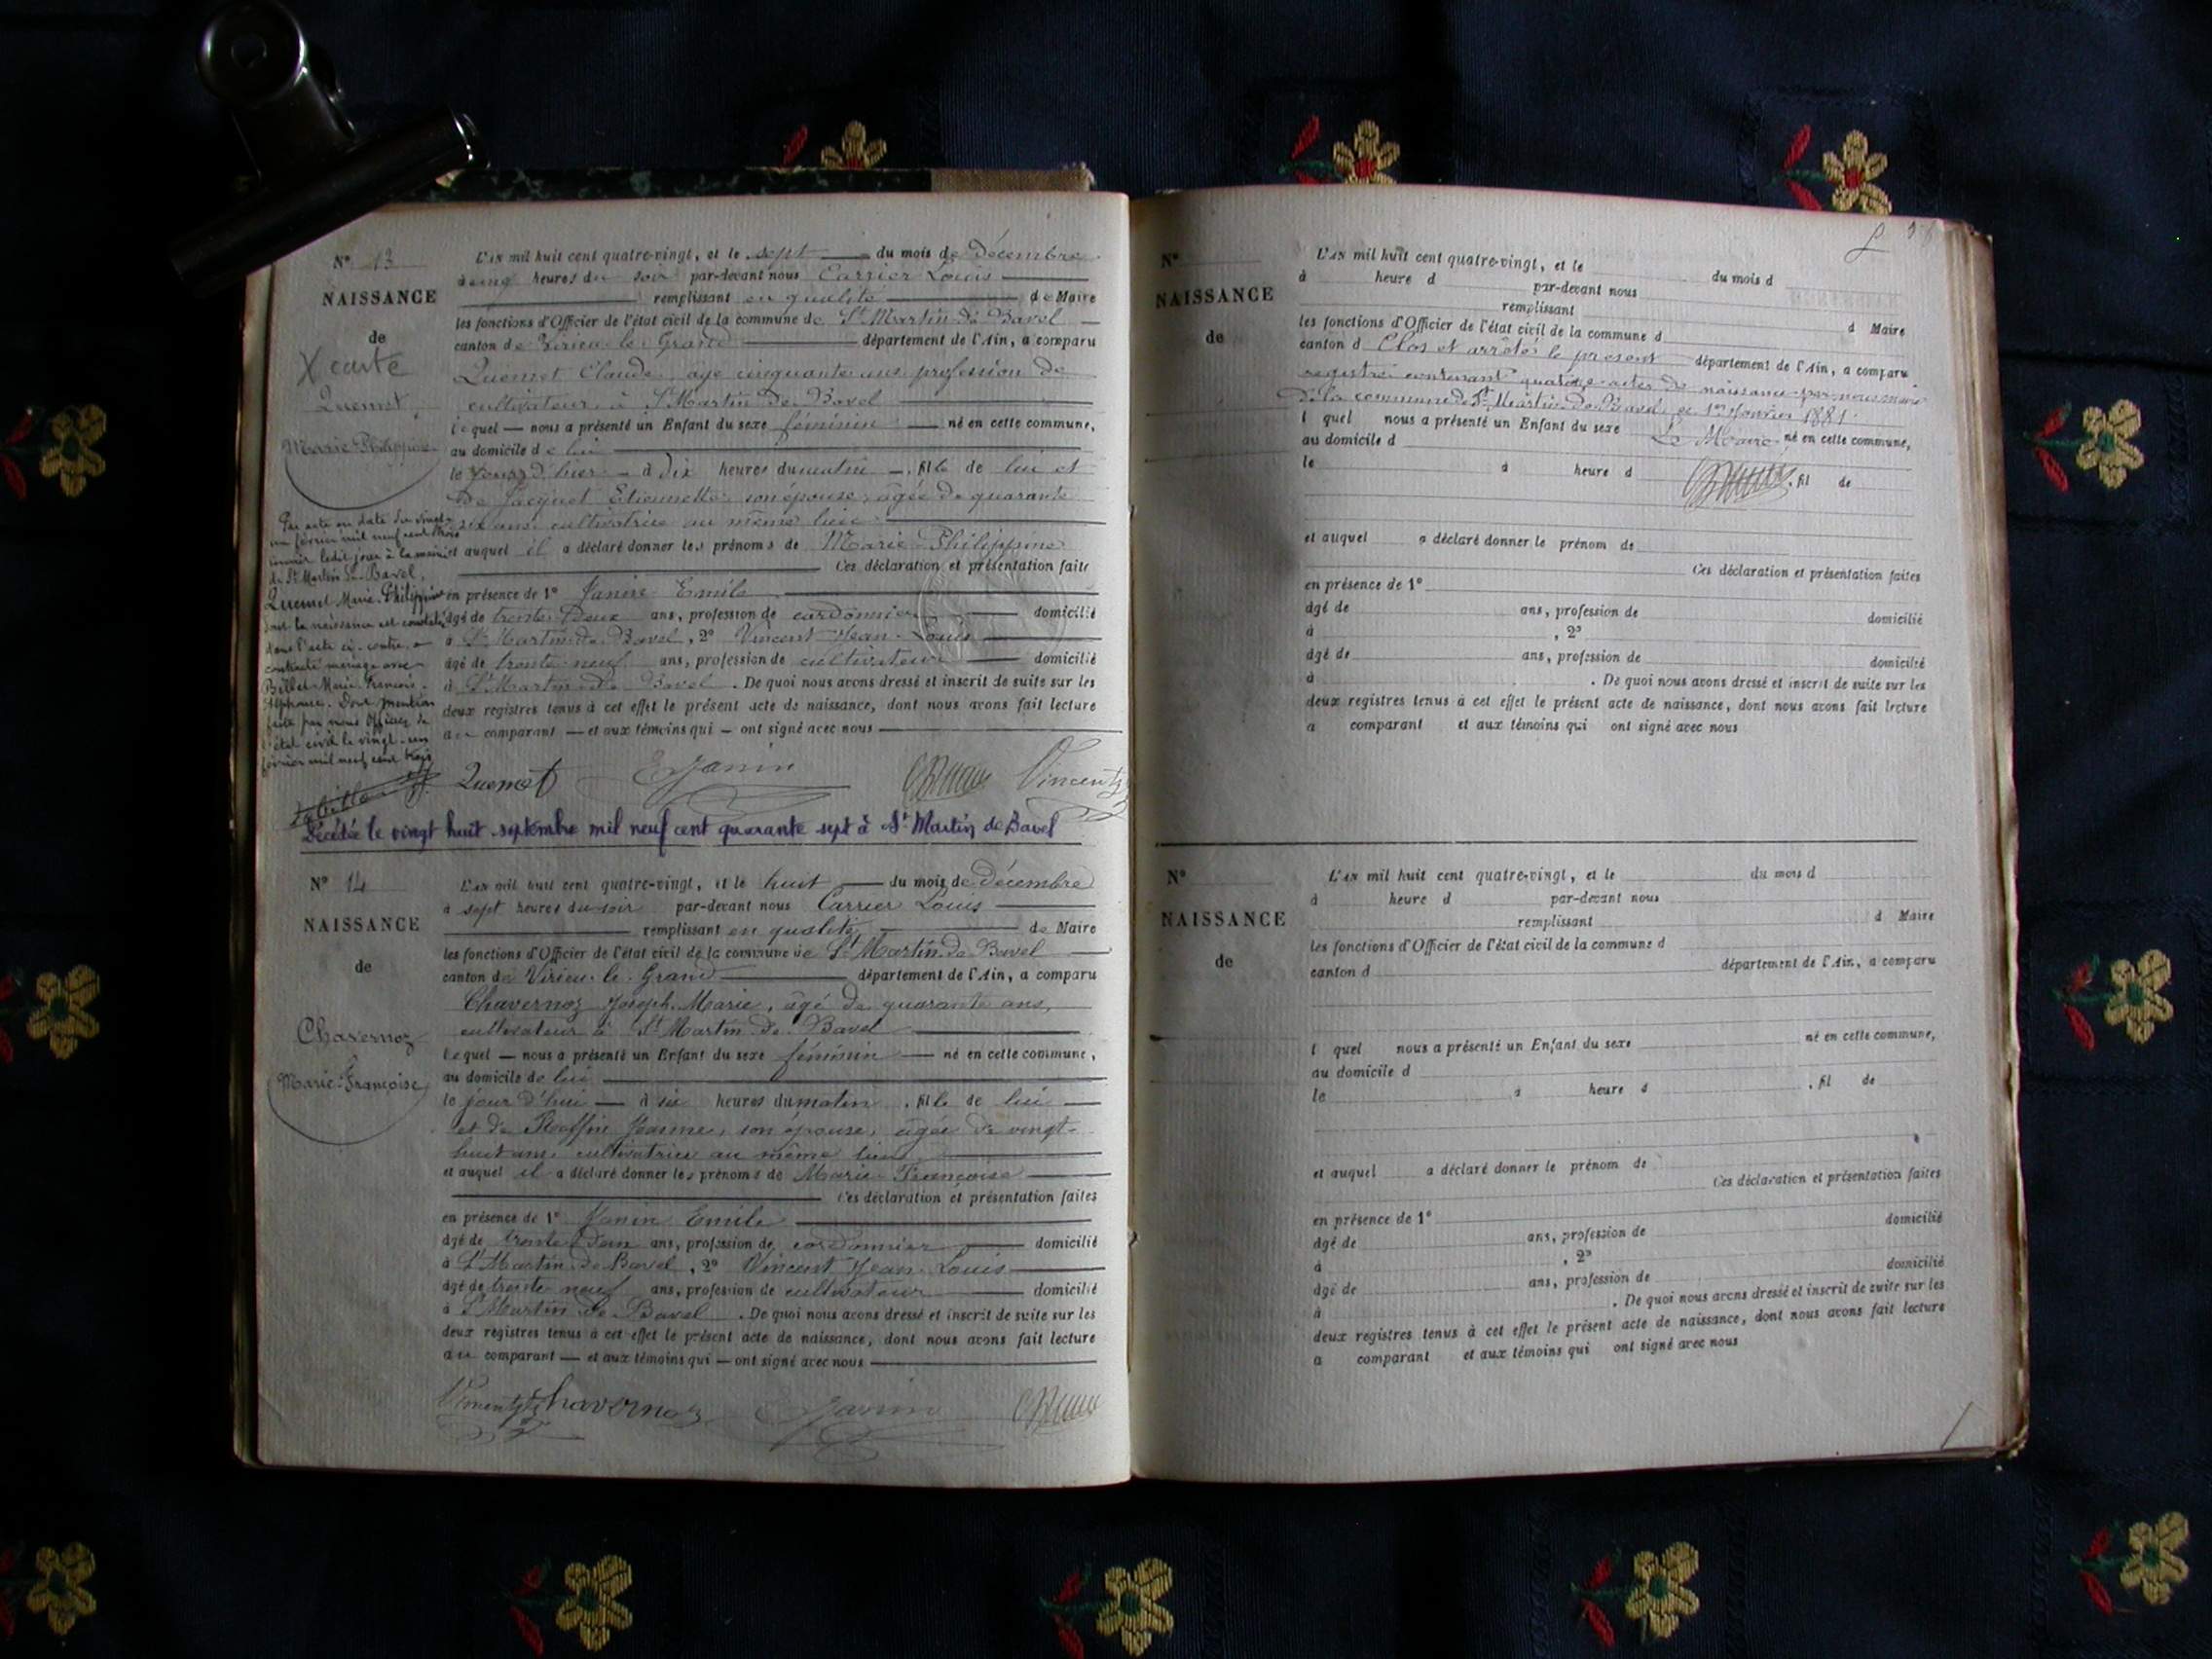 N° 13
NAISSANCE
de
X carte
Quemet
Marie-Philippine
L'AN mil huit cent quatre-vingt, et le sept du mois de Décembre
à cinq heures du soir par-devant nous Carrier Louis
remplissant en qualité de Maire
les fonctions d'Officier de l'état civil de la commune de St Martin de Bavel
canton de Virieu-le-Grand département de l'Ain, a comparu
Quemet Claude, âgé cinquante ans profession de
cultivateur, à St Martin de Bavel
lequel — nous a présenté un Enfant du sexe féminin — né en cette commune,
au domicile de lui
le jour d'hier à dix heures du matin, fille de lui et
de Jacquet Etiennette son épouse, âgée de quarante
six ans cultivatrice au même lieu
et auquel il a déclaré donner les prénoms de Marie-Philippine
Ces déclaration et présentation faite
en présence de 1° Janin Emile
âgé de trente-Deux ans, profession de cordonnier domicilié
à St Martin de Bavel, 2° Vincent Jean-Louis
âgé de trente neuf ans, profession de cultivateur domicilié
à St Martin de Bavel. De quoi nous avons dressé et inscrit de suite sur les
deux registres tenus à cet effet le présent acte de naissance, dont nous avons fait lecture
au comparant — et aux témoins qui — ont signé avec nous
Par acte en date du vingt-
un février mil neuf cent trois
ledit jour à la mairie
de St Martin de Bavel,
Quemet Marie-Philippine
dont la naissance est constatée
dans l'acte ci-contre, a
contracté mariage avec
Billet Marie François
Alphonse. Dont mention
faite par nous Officier de
l'état civil le vingt-un
février mil neuf cent trois
Quemet E Janin Vincent
Décédée le vingt huit septembre mil neuf cent quarante sept à St Martin de Bavel
N° 14
NAISSANCE
de
Chavernoz
Marie-Françoise
L'AN mil huit cent quatre-vingt, et le huit du mois de décembre
à sept heures du soir par-devant nous Carrier Louis
remplissant en qualité de Maire
les fonctions d'Officier de l'état civil de la commune de St Martin de Bavel
canton de Virieu-le-Grand département de l'Ain, a comparu
Chavernoz Joseph-Marie, âgé de quarante ans,
cultivateur à St Martin de Bavel
lequel — nous a présenté un Enfant du sexe féminin — né en cette commune,
au domicile de lui
le jour d'hui — à six heures du matin, fille de lui
et de Jeanne, son épouse, âgée de vingt-
huit ans, cultivatrice au même lieu
et auquel il a déclaré donner les prénoms de Marie Françoise
Ces déclaration et présentation faites
en présence de 1° Janin Emile
âgé de trente Deux ans, profession de cordonnier domicilié
à St Martin de Bavel, 2° Vincent Jean-Louis
âgé de trente neuf ans, profession de cultivateur domicilié
à St Martin de Bavel. De quoi nous avons dressé et inscrit de suite sur les
deux registres tenus à cet effet le présent acte de naissance, dont nous avons fait lecture
au comparant — et aux témoins qui — ont signé avec nous
Vincent Chavernoz E Janin
N°
NAISSANCE
de
L'AN mil huit cent quatre-vingt, et le du mois d
à heure d par-devant nous
remplissant d Maire
les fonctions d'Officier de l'état civil de la commune d
canton d Clos et arrêté le présent département de l'Ain, a comparu
registre contenant quatorze actes de naissance par nous maire
de la commune de St Martin de Bavel, ce 1er Janvier 1881.
l quel nous a présenté un Enfant du sexe Le Maire né en cette commune,
au domicile d
le à heure d , fil de
et auquel a déclaré donner le prénom de
Ces déclaration et présentation faites
en présence de 1°
âgé de ans, profession de domicilié
à , 2°
âgé de ans, profession de domicilié
à . De quoi nous avons dressé et inscrit de suite sur les
deux registres tenus à cet effet le présent acte de naissance, dont nous avons fait lecture
a comparant et aux témoins qui ont signé avec nous
N°
NAISSANCE
de
L'AN mil huit cent quatre-vingt, et le du mois d
à heure d par-devant nous
remplissant d Maire
les fonctions d'Officier de l'état civil de la commune d
canton d département de l'Ain, a comparu
l quel nous a présenté un Enfant du sexe né en cette commune,
au domicile d
le à heure d , fil de
et auquel a déclaré donner le prénom de
Ces déclaration et présentation faites
en présence de 1°
âgé de ans, profession de domicilié
à , 2°
âgé de ans, profession de domicilié
à . De quoi nous avons dressé et inscrit de suite sur les
deux registres tenus à cet effet le présent acte de naissance, dont nous avons fait lecture
a comparant et aux témoins qui ont signé avec nous